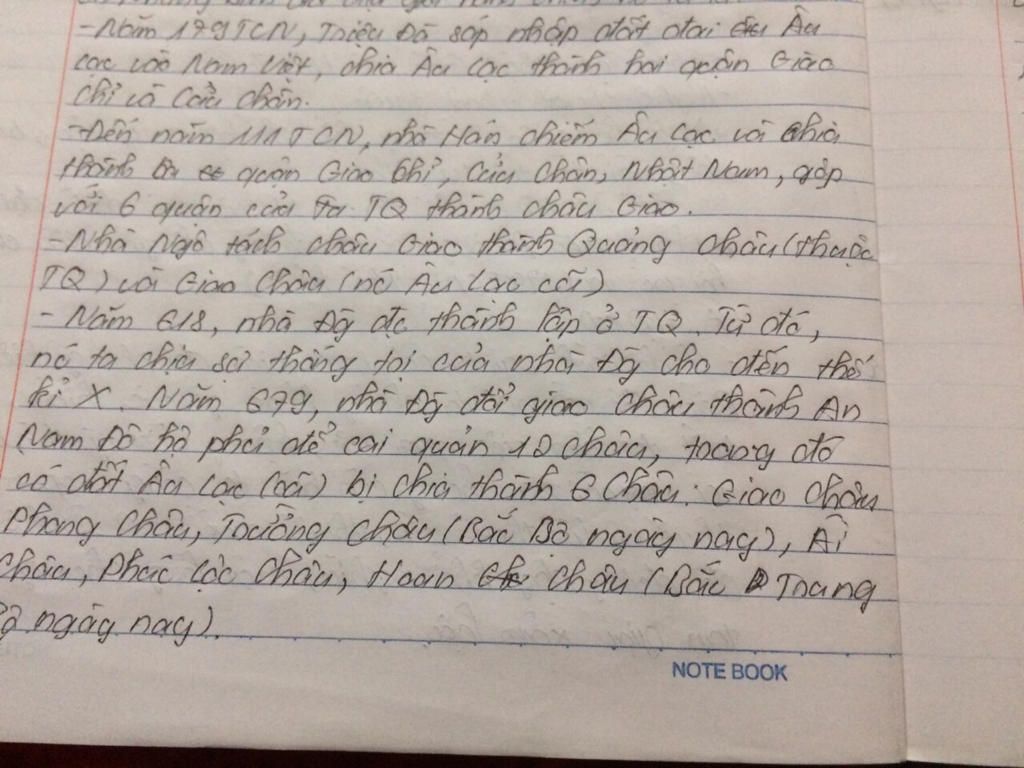 - Năm 179TCN, Triệu Đà sáp nhập đất đai Âu
Lạc vào Nam Việt, chia Âu Lạc thành hai quận Giao
Chỉ và Cửu Chân.
- Đến năm 111TCN, nhà Hán chiếm Âu Lạc và chia
thành ba quận Giao Chỉ, Cửu Chân, Nhật Nam, gộp
với 6 quận của TQ thành châu Giao.
- Nhà Ngô tách châu Giao thành Quảng Châu (thuộc
TQ) và Giao Châu (nc Âu Lạc cũ)
- Năm 618, nhà Đg đc thành lập ở TQ. Từ đó,
nc ta chịu sự thống trị của nhà Đg cho đến thế
kỉ X. Năm 679, nhà Đg đổi giao châu thành An
Nam Đô hộ phủ để cai quản 12 châu, trong đó
có đất Âu Lạc (cũ) bị chia thành 6 Châu: Giao châu
Phong Châu, Trường Châu (Bắc Bộ ngày nay), Ái
Châu, Phúc Lộc Châu, Hoan Châu (Bắc Trung
Bộ ngày nay).
NOTE BOOK